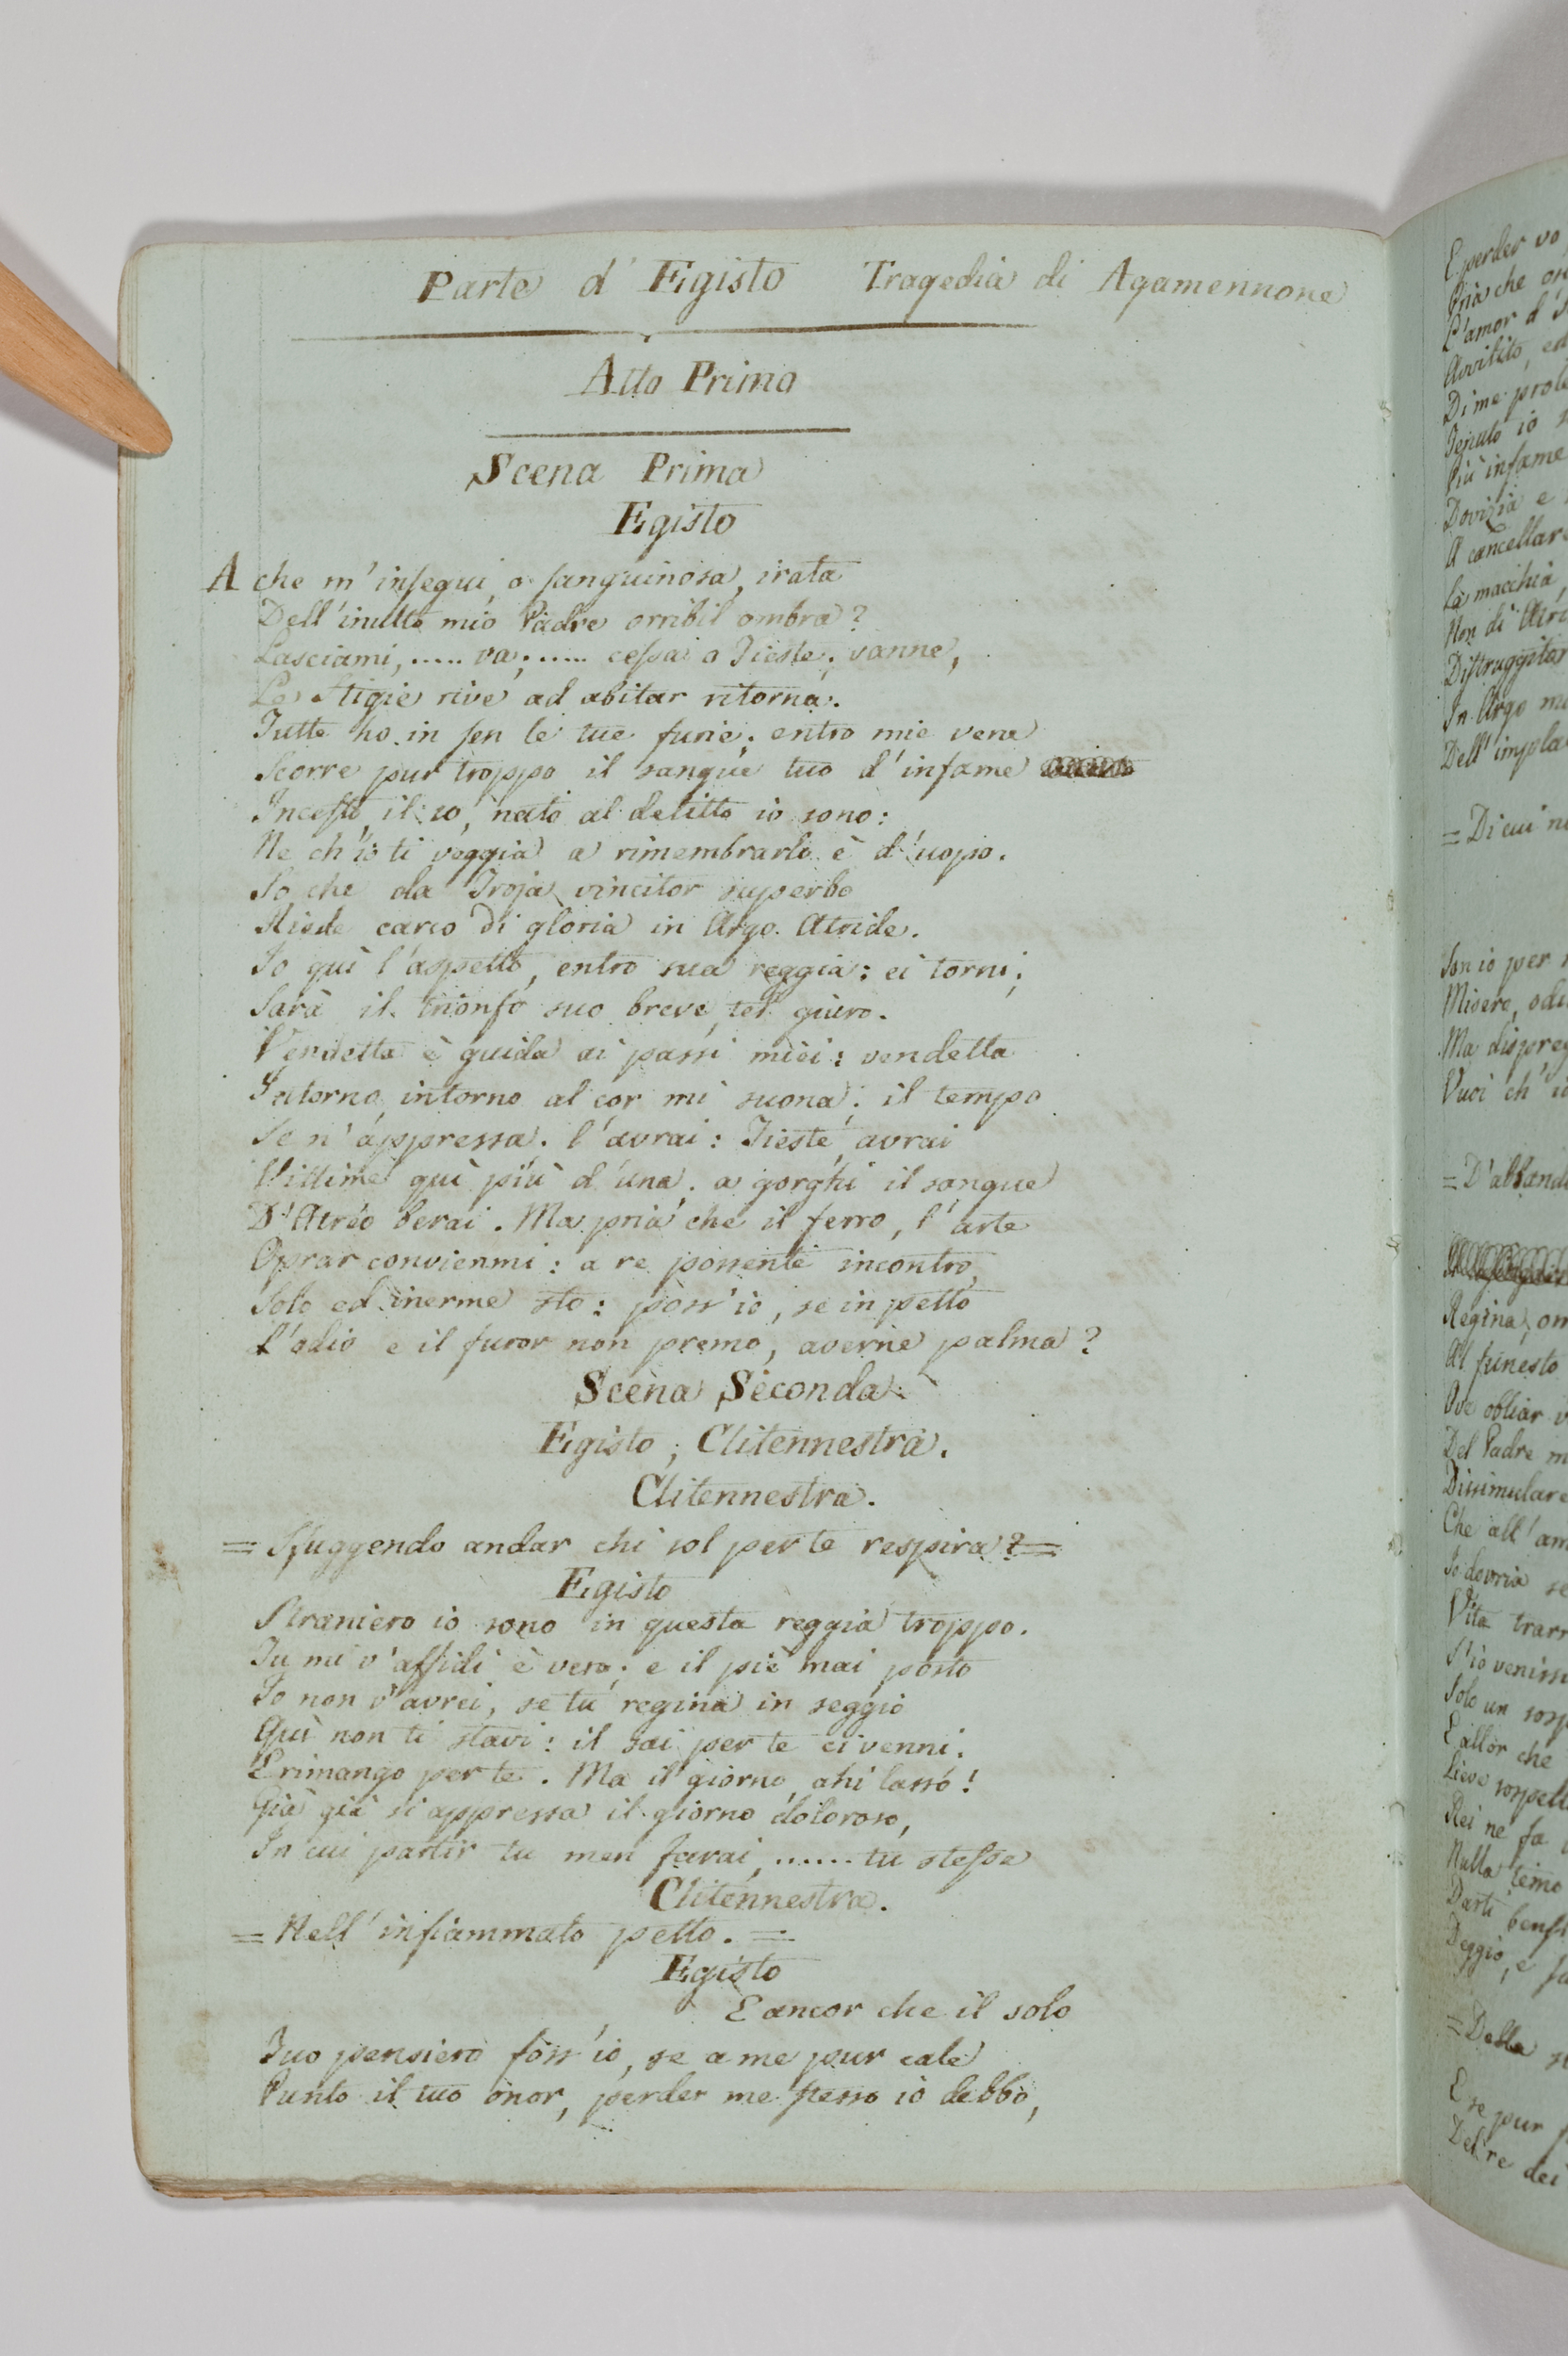 Parte d' Egisto Tragedia di Agamennone
Atto Primo
Scena Prima
Egisto
A che m' insegui, o sanguinosa, irata
Dell' inulto mio Padre orribil ombra?
Lasciami, ..... va; ..... cessa o Tieste; vanne,
Le Stigie rive ad abitar ritorna.
Tutte ho in sen le tue furie; entro mie vene
Scorre pur troppo il sangue tuo d' infame
Incesto, il so, nato al delitto io sono:
Ne ch' io ti veggia a rimembrarlo è d' uopo.
So che da Troja vincitor superbo
Riede carco di gloria in Argo Atride.
Io quì l' aspetto, entro sua reggia: ei torni;
Sarà il trionfo suo breve, tel giuro.
Vendetta è guida ai passi miei: vendetta
Intorno, intorno al cor mi suona; il tempo
Se n' appressa; l' avrai: Tieste, avrai
Vittime quì più d' una; a gorghi il sangue
D' Atréo berai. Ma pria che il ferro, l' arte
Oprar conviemmi: a re possente incontro,
Solo ed inerme sto: poss' io, se in petto
L' odio e il furor non premo, averne palma?
Scena Seconda
Egisto, Clitennestra.
Clitennestra.
= Sfuggendo andar chi sol per te respira? =
Egisto
Straniero io sono in questa reggia troppo.
Tu mi v' affidi è vero; e il piè mai posto
Io non v' avrei, se tu regina in seggio
Quì non ti stavi: il sai per te ci venni;
E rimango per te. Ma il giorno, ahi lasso!
Già già si appressa il giorno doloroso,
In cui partir tu men farai, ...... tu stessa
Clitennestra.
= Nell' infiammato petto. =
Egisto
E ancor che il solo
Tuo pensiero foss' io, se a me pur cale
Punto il tuo onor, perder me stesso io debbo,
E perder vo
Pria che
L' amor d'
Avvilito, ed
Di me prole
Tenuto io
Più infame
Dovizia e
A cancellare
La macchia
Non di
Distruggitor
In Argo
Dell'
= Di cui
Son io per
Misero,
Ma
Vuoi ch'
= D'
Regina,
Al funesto
Ove obliar
Del Padre
Dissimulare
Che all'
Io dovria
Vita
S' io
Solo un
E allor che
Lieve
Rei ne fa
Nulla temo
Darti
Deggio, e
= Della
E se pur
Del re dei